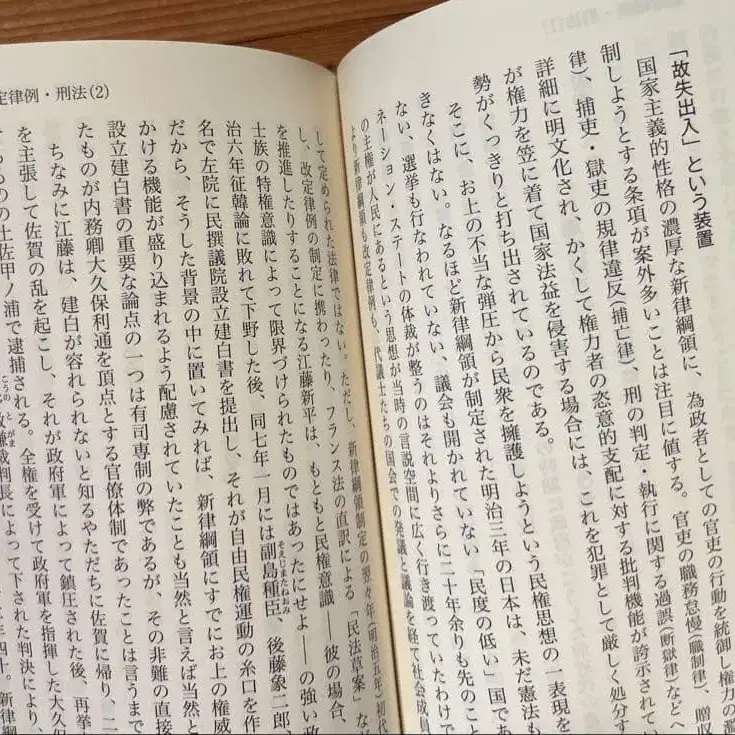 「故失出入」という装置
国家主義的性格の濃厚な新律綱領に、為政者としての官吏の行動を統御し権力の濫
制しようとする条項が案外多いことは注目に値する。官吏の職務怠慢(職制律)、贈収
律)、捕吏・獄吏の規律違反(捕亡律)、刑の判定・執行に関する過誤(断獄律)などへ
詳細に明文化され、かくして権力者の恣意的支配に対する批判機能が誇示されてい
が権力を笠に着て国家法益を侵害する場合には、これを犯罪として厳しく処分す
勢がくっきりと打ち出されているのである。
そこに、お上の不当な弾圧から民衆を擁護しようという民権思想の一表現を
きなくはない。なるほど新律綱領が制定された明治三年の日本は、未だ憲法も
ない、選挙も行なわれていない、議会も開かれていない「民度の低い」国であ
ネーション・ステートの体裁が整うのはそれよりさらに二十年余りも先のこと
の主権が人民にあるという思想が当時の言説空間に広く行き渡っていたわけで
より新律綱領も改定律例も、代議士たちの国会での発議と議論を経て社会成員
定律例・刑法(2)
して定められた法律ではない。ただし、新律綱領制定の翌々年(明治五年)初代
し、改定律例の制定に携わったり、フランス法の直訳による「民法草案」な
を推進したりすることになる江藤新平は、もともと民権意識——彼の場合、
士族の特権意識によって限界づけられたものではあったにせよ——の強い政
治六年征韓論に敗れて下野した後、同七年一月には副島種臣、後藤象二郎、
そえじまたねおみ
名で左院に民撰議院設立建白書を提出し、それが自由民権運動の糸口を作
だから、そうした背景の中に置いてみれば、新律綱領にすでにお上の権威
かける機能が盛り込まれるよう配慮されていたことも当然と言えば当然と
設立建白書の重要な論点の一つは有司専制の弊であるが、その非難の直接
たものが内務卿大久保利通を頂点とする官僚体制であったことは言うまで
ちなみに江藤は、建白が容れられないと知るやただちに佐賀に帰り、二
を主張して佐賀の乱を起こし、それが政府軍によって鎮圧された後、再挙
土佐甲ノ浦で逮捕される。全権を受けて政府軍を指揮した大久保
こうの
裁判長によって下された判決により、